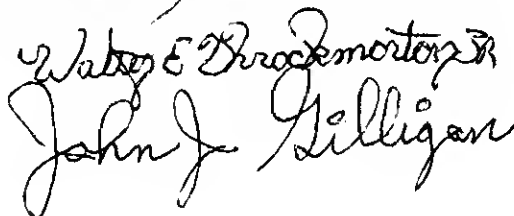 Walter E Throckmorton JR
John J. Gilligan